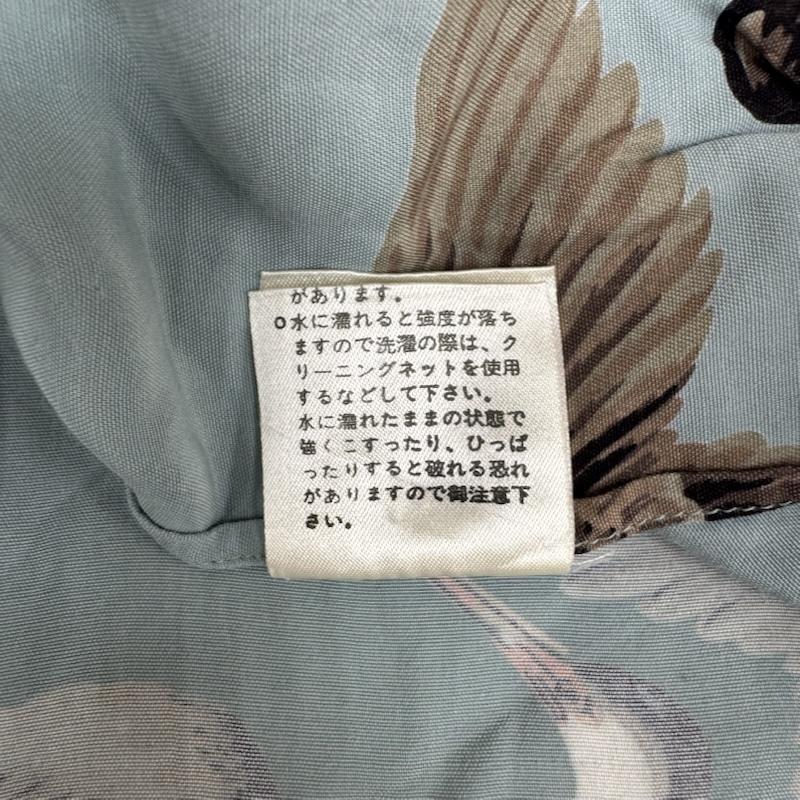 があります。
o水に濡れると強度が落ち
ますので洗濯の際は、ク
リーニングネットを使用
するなどして下さい。
水に濡れたままの状態で
強くこすったり、ひっぱ
ったりすると破れる恐れ
がありますので御注意下
さい。